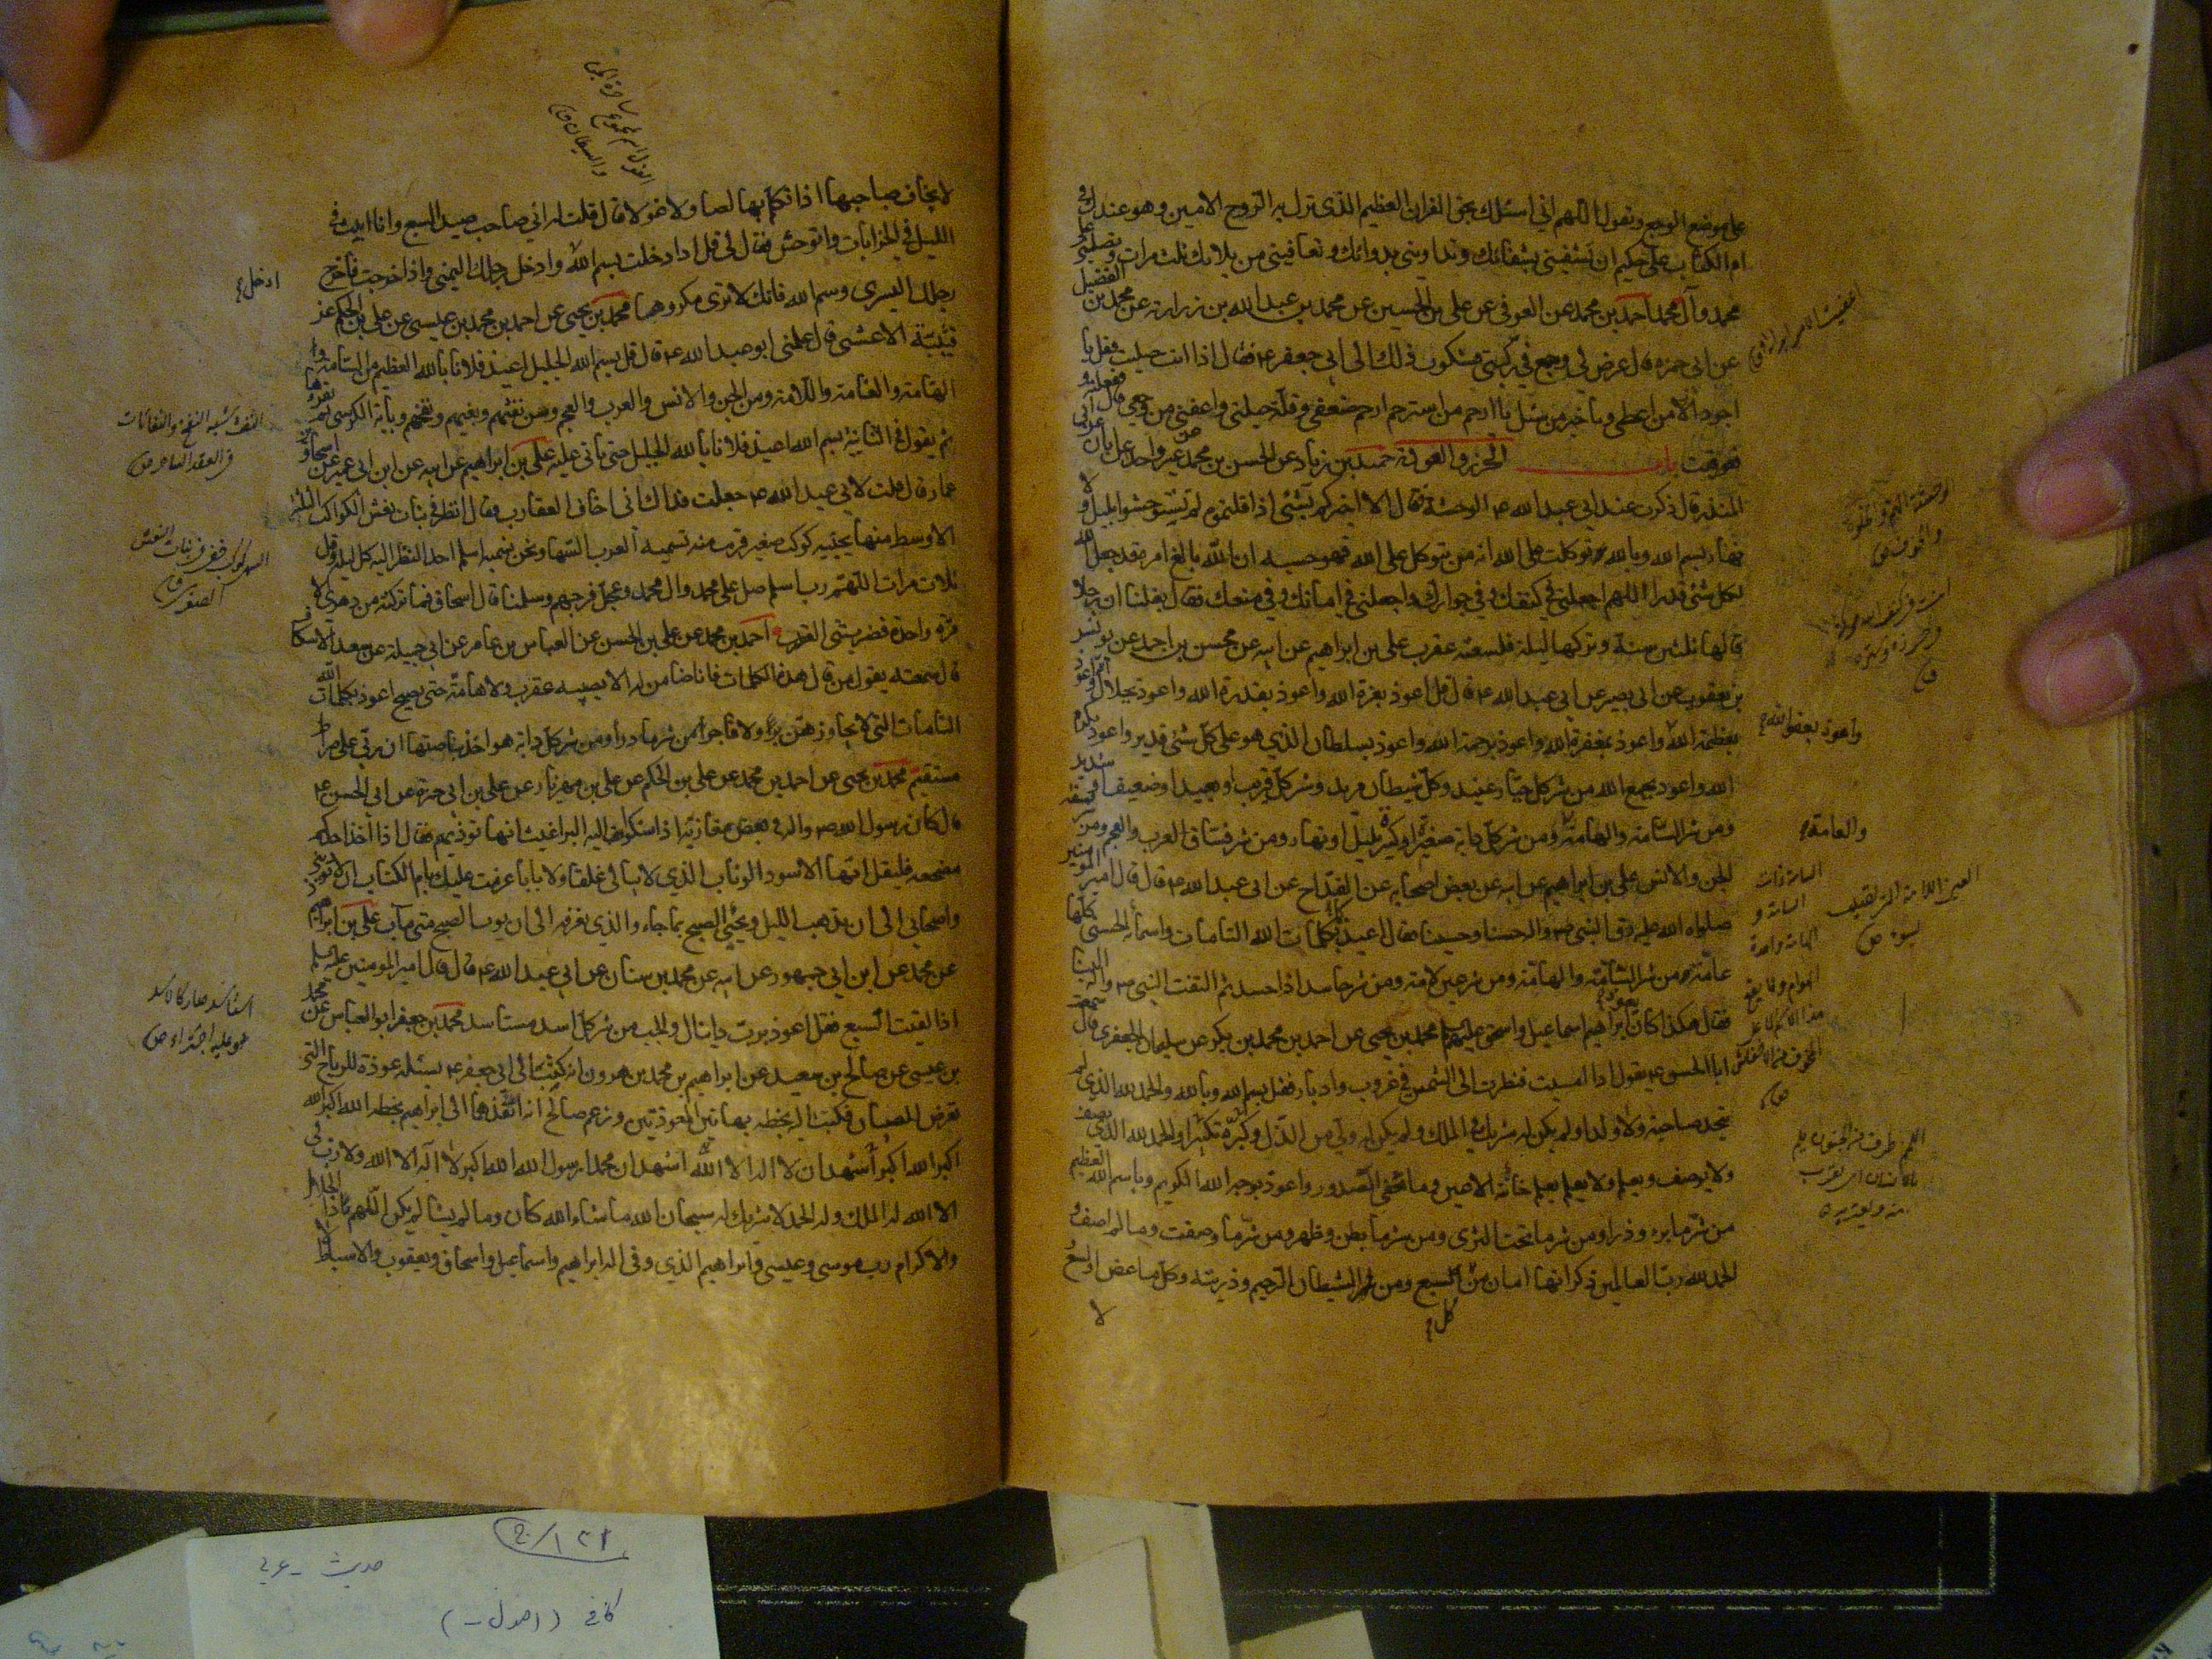 على موضع الوجع وتقول اللهم اني اسئلك بحق القران العظيم الذى نزل به الروح الامين وهو عندك في
ام الكتاب على حكيم ان تشفينى بشفائك وتداوينى بدوائك وتعافينى من بلائك ثلث مرات وتصلي على
محمد وآل محمد احمد بن محمد عن العوفى عن على بن الحسين عن محمد بن عبد الله بن زرارة عن محمد بن الفضيل
عن ابى حمزه قال عرض لى وجع في ركبتى فشكوت ذلك الى ابى جعفر ع فقال اذا انت صليت فقل يا
اجود من اعطى ويا خير من سئل يا ارحم من استرحم ارحم ضعفى وقلة حيلتى واعفنى من وجعى قال ففعلته
فعوفيت باب الحرز والعوذة حميد بن زياد عن الحسن بن محمد عن غير واحد عن ابان عن ابى
المنذر قال ذكرت عند ابى عبد الله ع الوحشة فقال الا اخبركم بشئى اذا قلتموه لم تستوحشوا بليل ولا
نهار بسم الله وبالله وتوكلت على الله انه من يتوكل على الله فهو حسبه ان الله بالغ امره قد جعل الله
لكل شئى قدرا اللهم اجعلنى في كنفك وفى جوارك واجعلنى في امانك وفي منعك فقال بلغنا ان رجلا
قالها ثلثين سنة وتركها ليلة فلسعته عقرب على بن ابراهيم عن ابيه عن محسن بن احمد عن يونس
بن يعقوب عن ابى بصير عن ابى عبد الله ع قال قل اعوذ بعزة الله واعوذ بقدرة الله واعوذ بجلال الله واعوذ
بعظمة الله واعوذ بمغفرة الله واعوذ برحمة الله واعوذ بسلطان الذي هو على كل شئى قدير واعوذ بكرم
الله واعوذ بجمع الله من شر كل جبار عنيد وكل شيطان مريد وشر كل قريب او بعيد او ضعيف او شديد
ومن شر السامة والهامة ومن شر كل دابة صغيرة او كبيرة بليل او نهار ومن شر فساق العرب والعجم ومن شر فسقة
الجن والانس على بن ابراهيم عن ابيه عن بعض اصحابه عن القداح عن ابى عبد الله ع قال قال امير المومنين
صلواه الله عليه رقى النبي ص والحسنا وحسينا فقال اعيذكما بكلمات الله التامات واسمائه الحسنى كلها
عامة من شر السامة والهامة ومن شر عين لامة ومن شر حاسد اذا حسد ثم التفت النبي ص والينا
فقال هكذا كان يعوذ ابراهيم اسماعيل واسحق عليهم محمد بن يحيى عن احمد بن محمد بن بكر عن سليمان الجعفرى قال سمعت
ابا الحسن ع يقول اذا امسيت فنظرت الى الشمس في غروب وادبار فقل بسم الله وبالله والحمد لله الذى لم
يتخذ صاحبة ولا ولدا ولم يكن له شريك في الملك ولم يكن له ولي من الذل وكبره تكبيرا والحمد لله الذى يصف
ولا يوصف ويعلم ولا يعلم يعلم خائنة الاعين وما تخفى الصدور واعوذ بوجه الله الكريم وباسم الله العظيم
من شر ما برء وذرا ومن شر ما تحت الثرى ومن شر ما بطن وظهر ومن شر ما وصفت وما لم اصف و
الحمد لله رب العالمين ذكر انها امان من كل سبع ومن شر الشيطان الرجيم وذريته وكل ما عض او لسع
واعوذ بعفو الله
والعامة
لا يخاف صاحبها اذا تكلم بها لصا ولا غولا قال قلت له انى صاحب صيد السبع وانا ابيت في
الليل في الخرابات واتوحش فقال لى قل اذا دخلت بسم الله وادخل رجلك اليمنى واذا خرجت فاخرج
رجلك اليسرى وسم الله فانك لا ترى مكروها محمد بن يحيى عن احمد بن محمد بن عيسى عن على بن الحكم عن
قتيبة الاعشى قال علمنى ابو عبد الله ع قال قل بسم الله الجليل اعيذ فلانا بالله العظيم من السامة و
الهامة والعامة واللامة ومن الجن والانس والعرب والعجم ومن نفثهم وبغيهم ونفخهم وبآية الكرسى ثم تقرءها
ثم يقول في الثانية بسم الله اعيذ فلانا بالله الجليل حتى ياتى عليه على بن ابراهيم عن ابيه عن ابن ابى عمير عن اسحاق بن
عمار قال قلت لابى عبد الله ع جعلت فداك انى اخاف العقارب فقال انظر في بنات نعش الكواكب الثلثة
الاوسط منها بجنبه كوكب صغير قريب منه تسميه العرب السها ونحن نسميه اسلم احد النظر اليه كل ليلة وقل
ثلاث مرات اللهم رب اسلم صل على محمد وال محمد وعجل فرجهم وسلمنا قال اسحاق فما تركته من دهرى الا
مرة واحدة فضربتنى العقرب احمد بن محمد عن على بن الحسن عن العباس بن عامر عن ابى جميلة عن سعد الاسكاف
قال سمعته يقول من قال هذه الكلمات فانا ضامن له الا يصيبه عقرب ولا هامة حتى يصبح اعوذ بكلمات الله
التامات التى لا يجاوزهن بر ولا فاجر من شر ما ذرأ ومن شر كل دابة هو اخذ بناصيتها ان ربى على صراط
مستقيم محمد بن يحيى عن احمد بن محمد عن على بن الحكم عن على بن مهزيار عن على بن ابى حمزة عن ابى الحسن ع
قال كان رسول الله ص واله في بعض مغازيه اذا شكوا اليه البراغيث انها توذيهم فقال اذا اخذ احدكم
مضجعه فليقل ايها الاسود الوثاب الذى لا يبالى غلقا ولا بابا عزمت عليك بام الكتاب ان لا توذينى
واصحابى الى ان يذهب الليل ويجئى الصبح بما جاء والذى نعرفه الى ان يؤب الصبح متى مآب على بن ابراهيم
عن محمد عن ابن ابى جمهور عن ابيه عن محمد بن سنان عن ابى عبد الله ع قال قال امير المومنين عليه السلم
اذا لقيت السبع فقل اعوذ برب دانيال والجب من شر كل اسد مستاسد محمد بن جعفر ابو العباس عن محمد
بن عيسى عن صالح بن سعيد عن ابراهيم بن محمد بن هرون انه كتب الى ابى جعفر ع يسئله عوذة للرياح التى
تعرض للصبيان فكتب اليه بخطه بهاتين العوذتين وزعم صالح انه انفذهما الى ابراهيم بخطه الله اكبر الله
اكبر الله اكبر اشهد ان لا اله الا الله اشهد ان محمدا رسول الله الله اكبر لا اله الا الله ولا رب لى
الا الله له الملك وله الحمد لا شريك له سبحان الله ما شاء الله كان وما لم يشا لم يكن اللهم يا ذا الجلال
والاكرام رب موسى وعيسى وابراهيم الذي وفى اله ابراهيم واسماعيل واسحاق ويعقوب والاسباط لا
ادخل
حديث - عربى
كافى (اصول -)